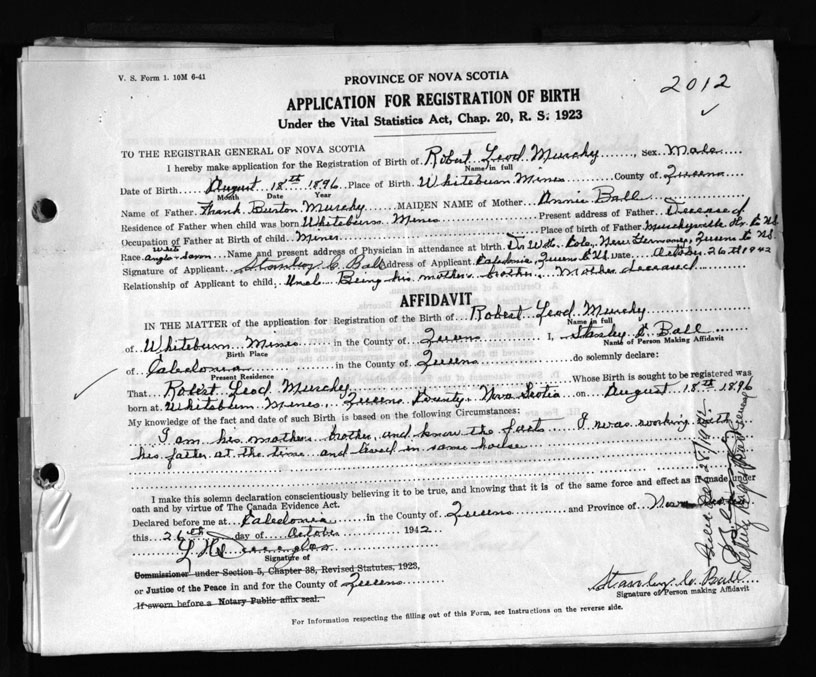 V. S. Form 1. 10M 6-41
2012
PROVINCE OF NOVA SCOTIA
APPLICATION FOR REGISTRATION OF BIRTH
Under the Vital Statistics Act, Chap. 20, R. S. 1923
TO THE REGISTRAR GENERAL OF NOVA SCOTIA
I hereby make application for the Registration of Birth of Robert Leod Murchy, Sex Male
Name in full
Date of Birth August 18th 1896 Place of Birth Whiteburn Mines County of Queens
Month Date Year
Name of Father Burton Murchy MAIDEN NAME of Mother Annie Ball
Residence of Father when child was born Whiteburn Mines Present address of Father Deceased
Occupation of Father at Birth of child Miner Place of birth of Father
Race Anglo-Saxon Name and present address of Physician in attendance at birth Dr New Germany, Queens Co NS
White
Signature of Applicant Stanley C Ball Address of Applicant Caledonia, Queens Co NS Date October 26th 1942
Relationship of Applicant to child, Uncle Being his mothers brother. Mother deceased
AFFIDAVIT
IN THE MATTER of the application for Registration of the Birth of Robert Leod Murchy
Name in full
of Whiteburn Mines in the County of Queens I, Stanley C Ball
Birth Place Name of Person Making Affidavit
of Caledonia in the County of Queens do solemnly declare:
Present Residence
That Robert Leod Murchy Whose Birth is sought to be registered was
born at Whiteburn Mines, Queens County, Nova Scotia on August 18th 1896
My knowledge of the fact and date of such Birth is based on the following Circumstances:
I am his mothers brother, and know the facts I was working with
his father at the time and lived in same house
I make this solemn declaration conscientiously believing it to be true, and knowing that it is of the same force and effect as if made under
oath and by virtue of The Canada Evidence Act.
Declared before me at Caledonia in the County of Queens and Province of Nova Scotia
this 26th day of October 1942
Signature of
Commissioner under Section 5, Chapter 38, Revised Statutes, 1923,
or Justice of the Peace in and for the County of Queens
If sworn before a Notary Public affix seal.
Stanley C. Ball
Signature of Person making Affidavit
For Information respecting the filling out of this Form, see Instructions on the reverse side.